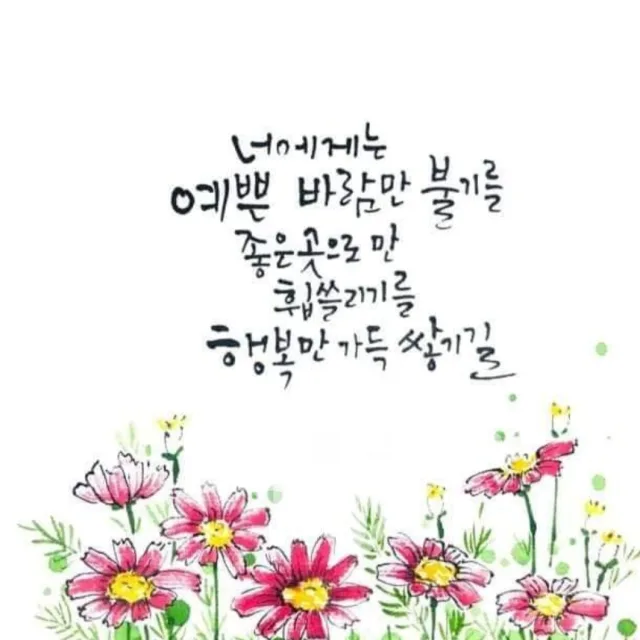 너에게는
예쁜 바람만 불기를
좋은곳으로만
휩쓸리기를
행복만 가득 쌓기길